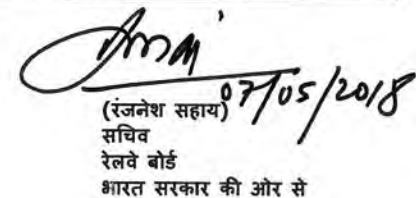 07/05/2018
(रंजनेश सहाय)
सचिव
रेलवे बोर्ड
भारत सरकार की ओर से